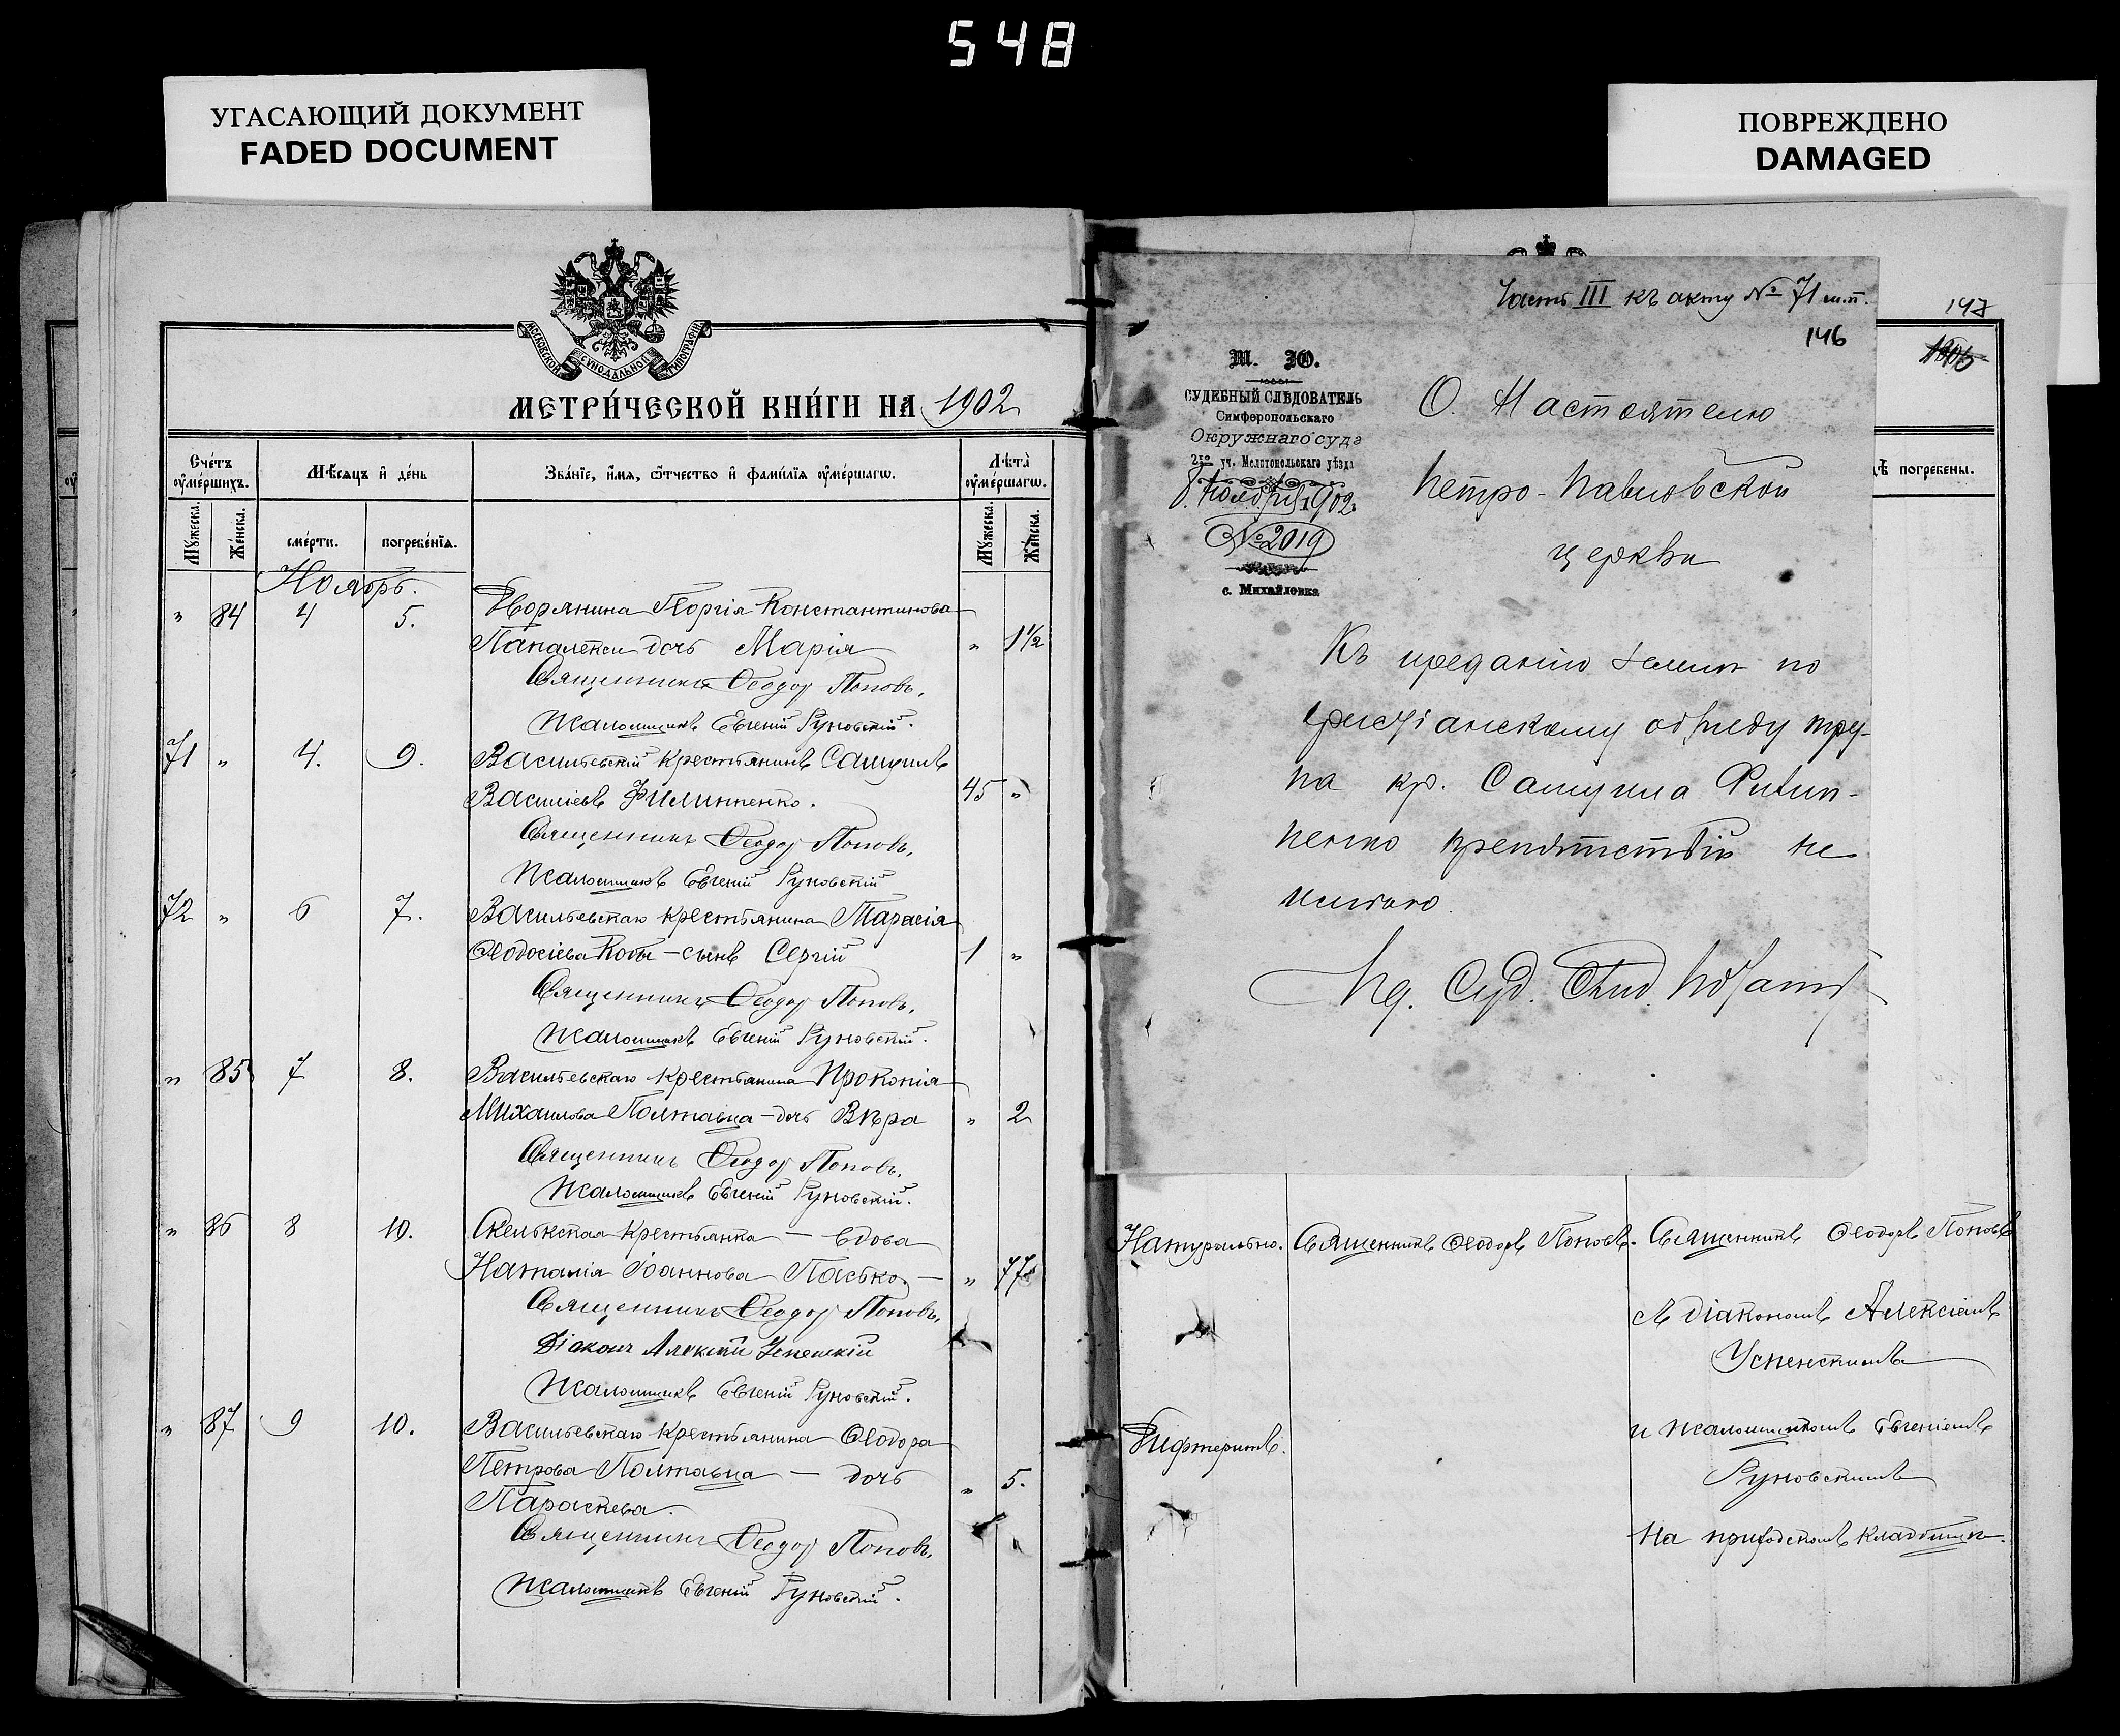 548
УГАСАЮЩИЙ ДОКУМЕНТ
FADED DOCUMENT
ПОВРЕЖДЕНО
DAMAGED
МОСКОВСКОЙ СУНОДАЛЬНОЙ ТИПОГРАФІИ
МЕТРИ́ЧЕСКОЙ КНИ́ГИ НА 1902
Сче́тъ ᲂу҆ме́ршихъ.
Мѣ́сѧцъ и҆ де́нь
Зва́нїе, и҆́мѧ, ѻ҆́тчество и҆ фами́лїѧ ᲂу҆ме́ршагѡ.
Лѣта̀ ᲂу҆ме́ршагѡ.
Мꙋ́жеска. Же́нска.
сме́рти. погребе́нїѧ.
Мꙋ́жеска. Же́нска.
Ноябрь.
" 84 4 5. Дворянина Георгія Константинова
Папалекси дочь Марія " 1½
Священникъ Ѳеодоръ Поповъ.
Псаломщикъ Евгеній Руновскій.
71 " 4. 9. Васильевскій крестьянинъ Самуилъ
Василіевъ Филиппенко. 45 "
Священникъ Ѳеодоръ Поповъ.
Псаломщикъ Евгеній Руновскій
72 " 6 7. Васильевскаго крестьянина Тарасія
Ѳеодосіева Кобы – сынъ Сергій 1 "
Священникъ Ѳеодоръ Поповъ.
Псаломщикъ Евгеній Руновскій.
" 85 7 8. Васильевскаго крестьянина Прокопія
Михаилова Полтавца – дочь Вѣра " 2
Священникъ Ѳеодоръ Поповъ.
Псаломщикъ Евгеній Руновскій.
" 86 8 10. крестьянка – вдова
Наталія Іоаннова Пасько. – " 77
Священникъ Ѳеодоръ Поповъ.
Діаконъ Алексій Успенскій
Псаломщикъ Евгеній Руновскій.
" 87 9 10. Васильевскаго крестьянина Ѳеодора
Петрова Полтавца – дочь " 5.
Параскева.
Священникъ Ѳеодоръ Поповъ.
Псаломщикъ Евгеній Руновскій.
Часть III къ акту № 71 м.п.
146
147
М. Ю.
СУДЕБНЫЙ СЛѢДОВАТЕЛЬ
Симферопольскаго
Окружнаго суда
2го уч. Мелитопольскаго уѣзда
8 Ноября 1902.
№ 2019
с. Михайловка
О. Настоятелю
Петро-Павловской
церкви
Къ преданію землѣ по
христіанскому обряду тру-
па кр. Самуила Филип-
пенко препятствій не
имѣю.
И. д. Суд. Слѣд.
дѣ погребены.
Натурально. Священникъ Ѳеодоръ Поповъ. Священникъ Ѳеодоръ Поповъ
съ діакономъ Алексіемъ
Успенскимъ
Дифтеритъ. и псаломщикомъ Евгеніемъ
Руновскимъ
На приходскомъ кладбищѣ.